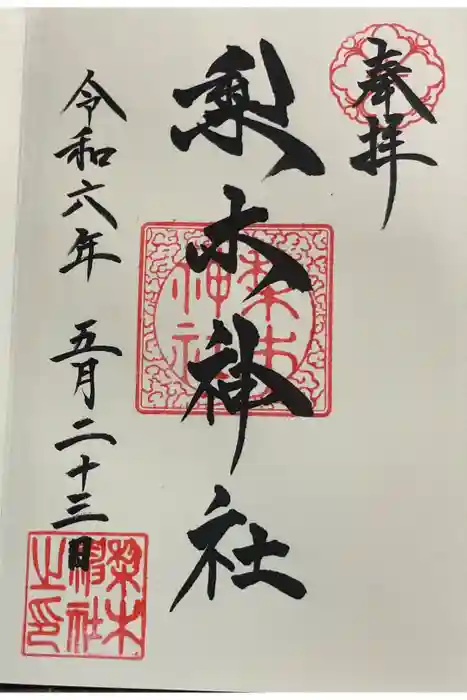 奉拝
梨木神社
梨木神社
令和六年 五月二十三日
梨木神社之印